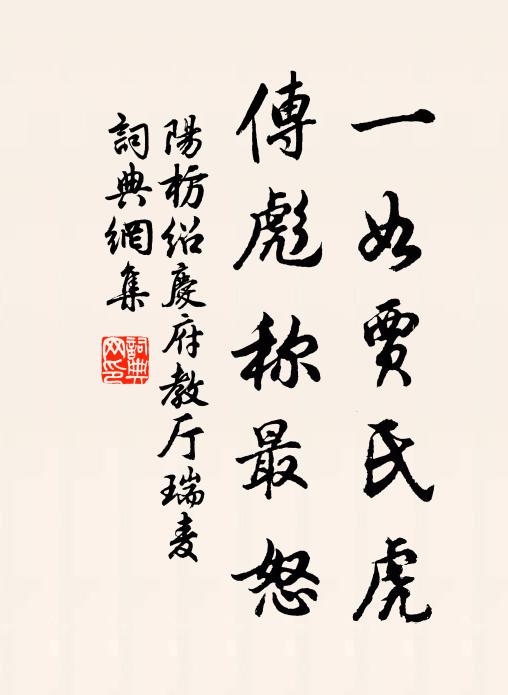 一如賈氏虎
傳彪称最怒
陽枋紹慶府教厅瑞麦
詞典網集
詞典网印